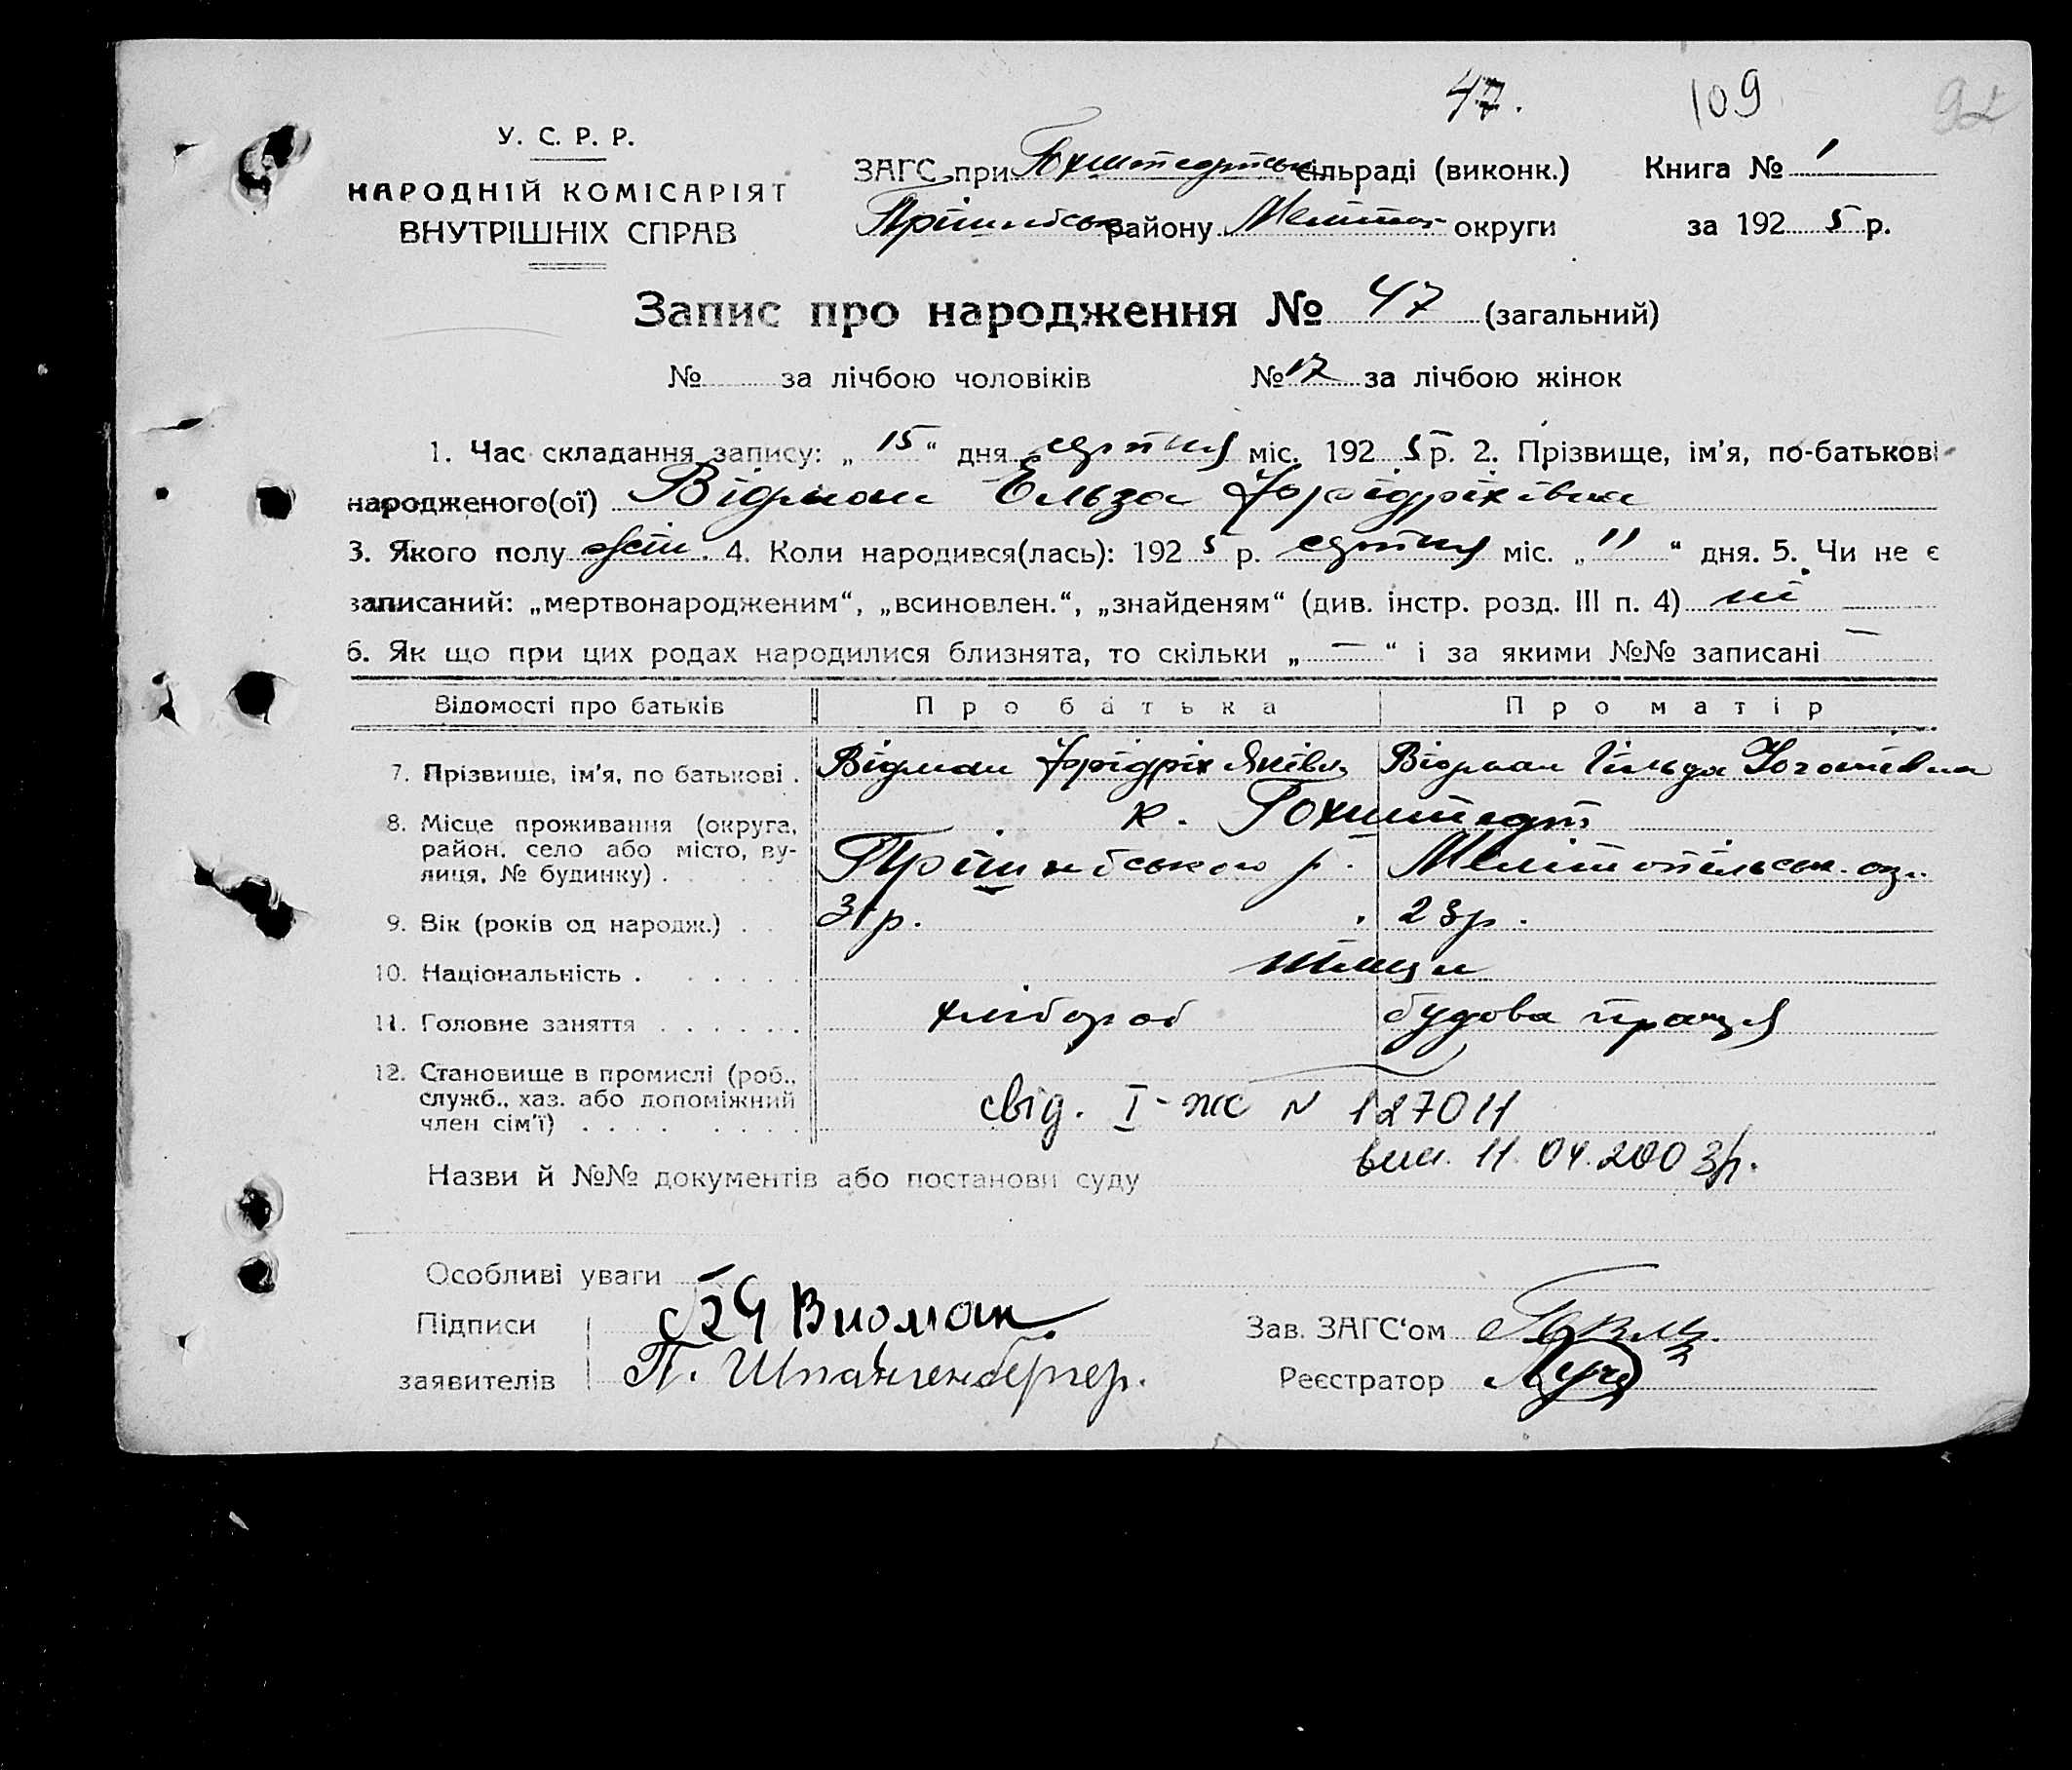 47. 109 92
У. С. Р. Р.
НАРОДНІЙ КОМІСАРІЯТ
ВНУТРІШНІХ СПРАВ
ЗАГС при Гохштедтськ сільраді (виконк.) Книга № 1
Пришибськ району Меліт округи за 1925 р.
Запис про народження № 47 (загальний)
№ за лічбою чоловіків №17 за лічбою жінок
1. Час складання запису: „ 15 “ дня серпня міс. 1925 р. 2. Прізвище, ім'я, по-батькові
народженого(ої) Відман Ельза Фрідріхівна
3. Якого полу жін. 4. Коли народився(лась): 1925 р. серпня міс. „ 11 “ дня. 5. Чи не є
записаний: „мертвонародженим“, „всиновлен.“, „знайденям“ (див. інстр. розд. III п. 4) ні
6. Як що при цих родах народилися близнята, то скільки „ — “ і за якими №№ записані —
Відомості про батьків Про батька Про матір
7. Прізвище, ім'я, по батькові . Відман Фрідріх Яківл Відман Гільда
8. Місце проживання (округа, район, село або місто, вулиця, № будинку) . к. Гохштедт
Пришибського р. Мелітопільськ. ок.
9. Вік (років од народж.) . . 31р. 23р.
10. Національність . . . . . німці
11. Головне заняття . . . . . . хлібороб будова праця
12. Становище в промислі (роб., служб., хаз. або допоміжний член сім'ї) . . . . . . . .
свід. І-жс N 127011
вид. 11.04.2003р.
Назви й №№ документів або постанови суду
Особливі уваги —
Підписи Видман Зав. ЗАГС‘ом
заявителів П. Шпангенбергер. Реєстратор